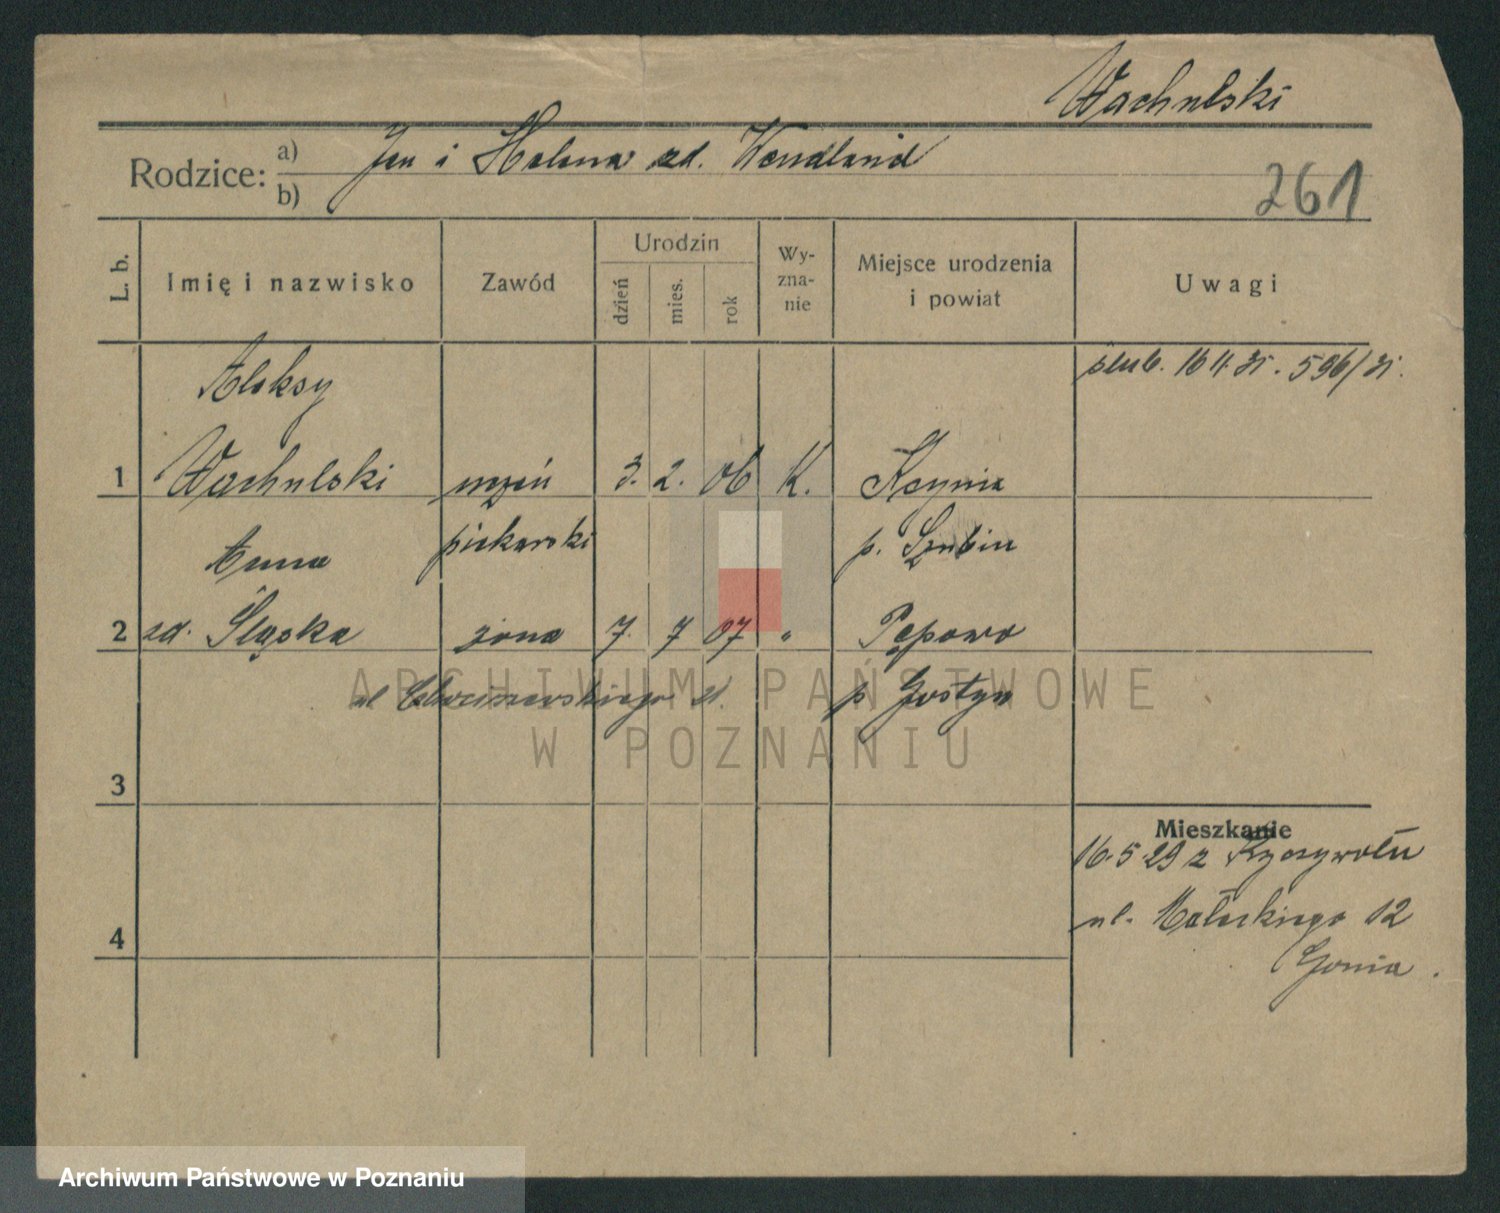 Wachulski
Rodzice: a) Jan i Helena zd. Wendland
b)
261
L. b.
Imię i nazwisko
Zawód
Urodzin
dzień
mies.
rok
Wy-
zna-
nie
Miejsce urodzenia
i powiat
Uwagi
Aleksy
ślub. 16 4. 31. 596/31.
1 Wachulski uczeń 3. 2. 06 K. Kcynia
piekarski p. Szubin
Anna
2 zd. Śląska żona 7. 7 07 " Pępowo
ul p Gostyn
ARCHIWUM PAŃSTWOWE
W POZNANIU
3
Mieszkanie
16.5.29 z Ryczywołu
ul. Małeckiego 12
4
Gonia.
Archiwum Państwowe w Poznaniu